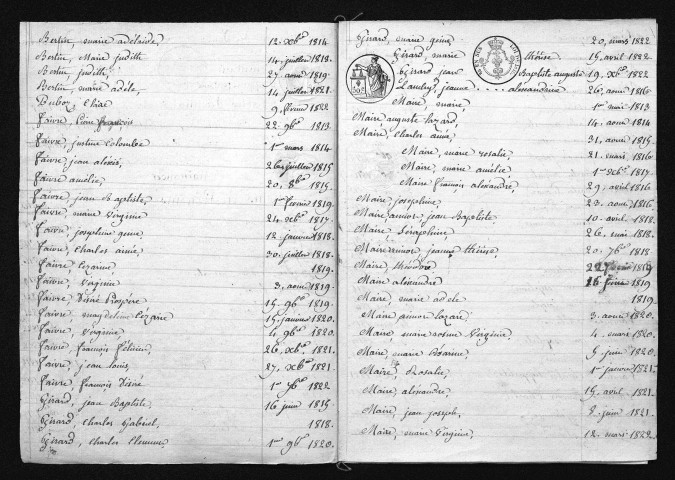 Bertin, marie adélaïde, 12. Xbre 1814
Bertin, Marie judith 14 juillet 1818.
Bertin, judith, 27 aout 1819
Bertin, marie adéle, 14 juillet 1821.
Duboz, Elise 9. février 1822
Faivre, Pierre françois 22. 9bre 1813
Faivre, justine Colombe 1er mars 1814
Faivre, jean aléxis, 26 juillet 1815
Faivre amélie, 20. 8bre 1815.
Faivre, jean Baptiste, 1er février 1819.
Faivre, marie Virginie 24. Xbre 1817.
Faivre, joséphine 12 janvier 1818.
Faivre, Charles aimé, 30. juillet 1818.
Faivre Cezarine, 1819.
Faivre, Virginie 3. aout 1819.
Faivre Désiré Prospère 15. 9bre 1819.
Faivre, magdeleine Cezarie 15. janvier 1820.
Faivre, Virginie 4. 9bre 1820.
Faivre, François Félicien, 26. Xbre 1821.
Faivre, jean Louis, 27. Xbre 1821.
Faivre, François Désiré 1er 7bre 1822
Girard, jean Baptiste, 16 juin 1815
Girard, Charles Gabriel, 1818.
Girard, Charles 1er 9bre 1820.
Girard, marie 20, mars 1822
Girard, marie thérèse 15. avril 1822
Girard jean Baptiste auguste 19. Xbre 1822
jeanne . . . . alexandrine 26, aout 1816
Maire, marie 1er mai 1813
Maire auguste Lazard, 14. aout 1814
Maire, Charles aimé, 31, aout 1815.
Maire, marie rosalie 21. mars, 1816
Maire, marie amélie 1er Xbre 1817.
Maire François alexandre, 29. avril 1816
Maire, joséphine, 23. aout 1816.
Maire jean Baptiste 10. avril 1818.
Maire, Séraphine, 26. mai 1818.
Maire jeanne thérèse, 20. 7bre 1818
Maire, théodore 1819
Maire alexandre 16 février 1819
Maire, marie adele 1819.
Maire Lazare 3. aout 1820.
Maire, marie Virginie, 4. mars 1820.
Maire, marie 5 juin 1820.
Maire, Rosalie, 1er janvier 1821.
Maire, alexandre, 15. avril 1821.
Maire, jean joseph, 8. juin 1821.
Maire, marie Virginie, 12. mars 1822.